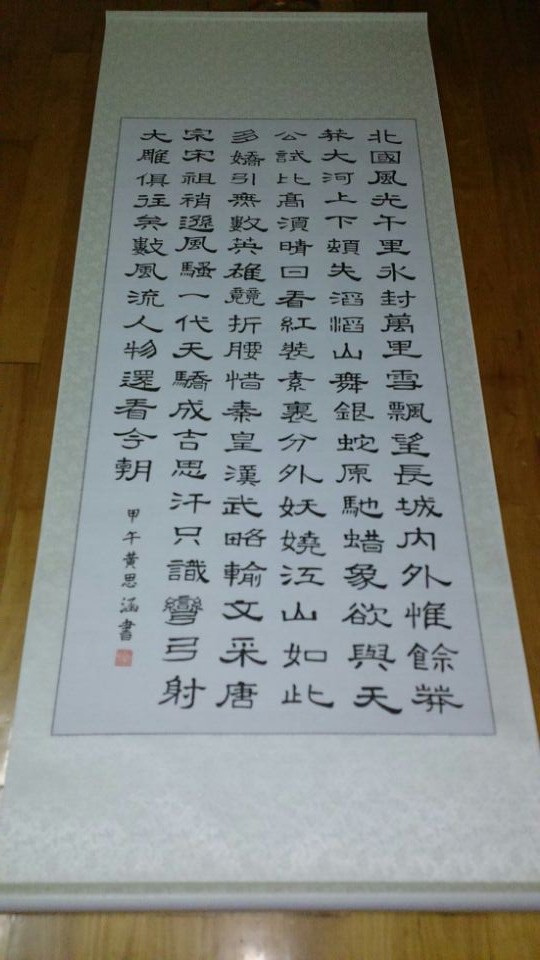 北國風光千里氷封萬里雪飄望長城内外惟餘莽
莽大河上下頓失滔滔山舞銀蛇原馳蜡象欲與天
公試比髙湏晴日看紅裝素裹分外妖嬈江山如此
多嬌引無數英雄競折腰惜秦皇漢武略輸文采唐
宗宋祖稍遜風騷一代天驕成吉思汗只識彎弓射
大雕俱往矣數風流人物還看今朝
甲午黃思涵書